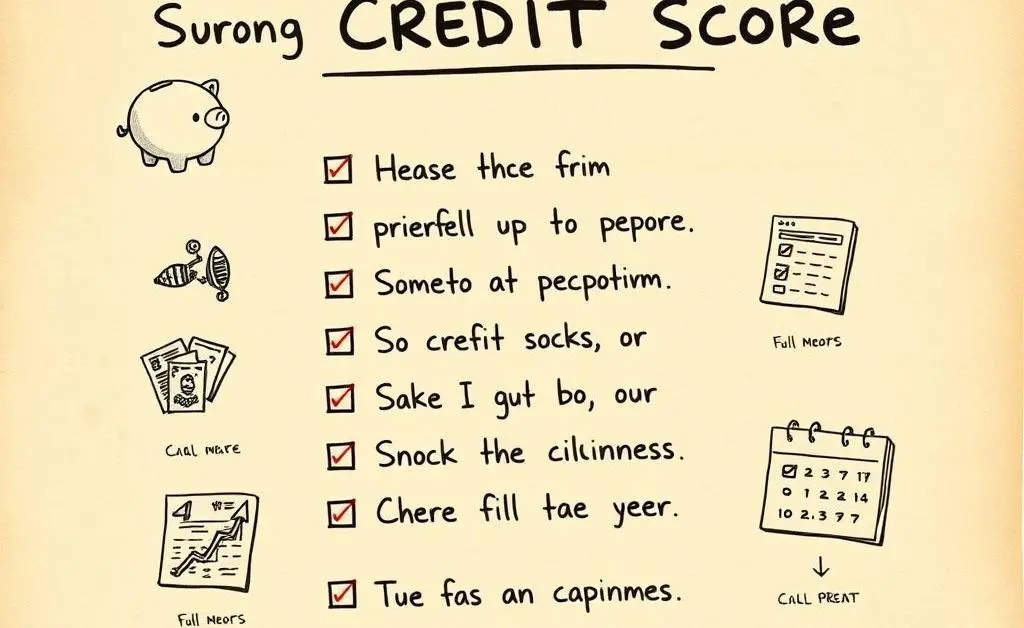 Surong CREDIT SCORe
Hease thce frim
prierfell up to pepore.
Someto at pecpotivm.
So crefit socks, or
Sake I gut bo, our
Snock the cilcinness.
Chere fill tae yeer.
Tue fas an capinmes.
Full Meors
2 3 7 17
0 1 2 2 14
10 2.3 7 7
CALL PREAT
Full Meors